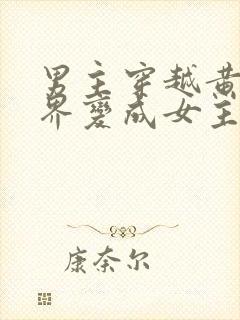 男主穿越黄
界變成女主
康奈尔